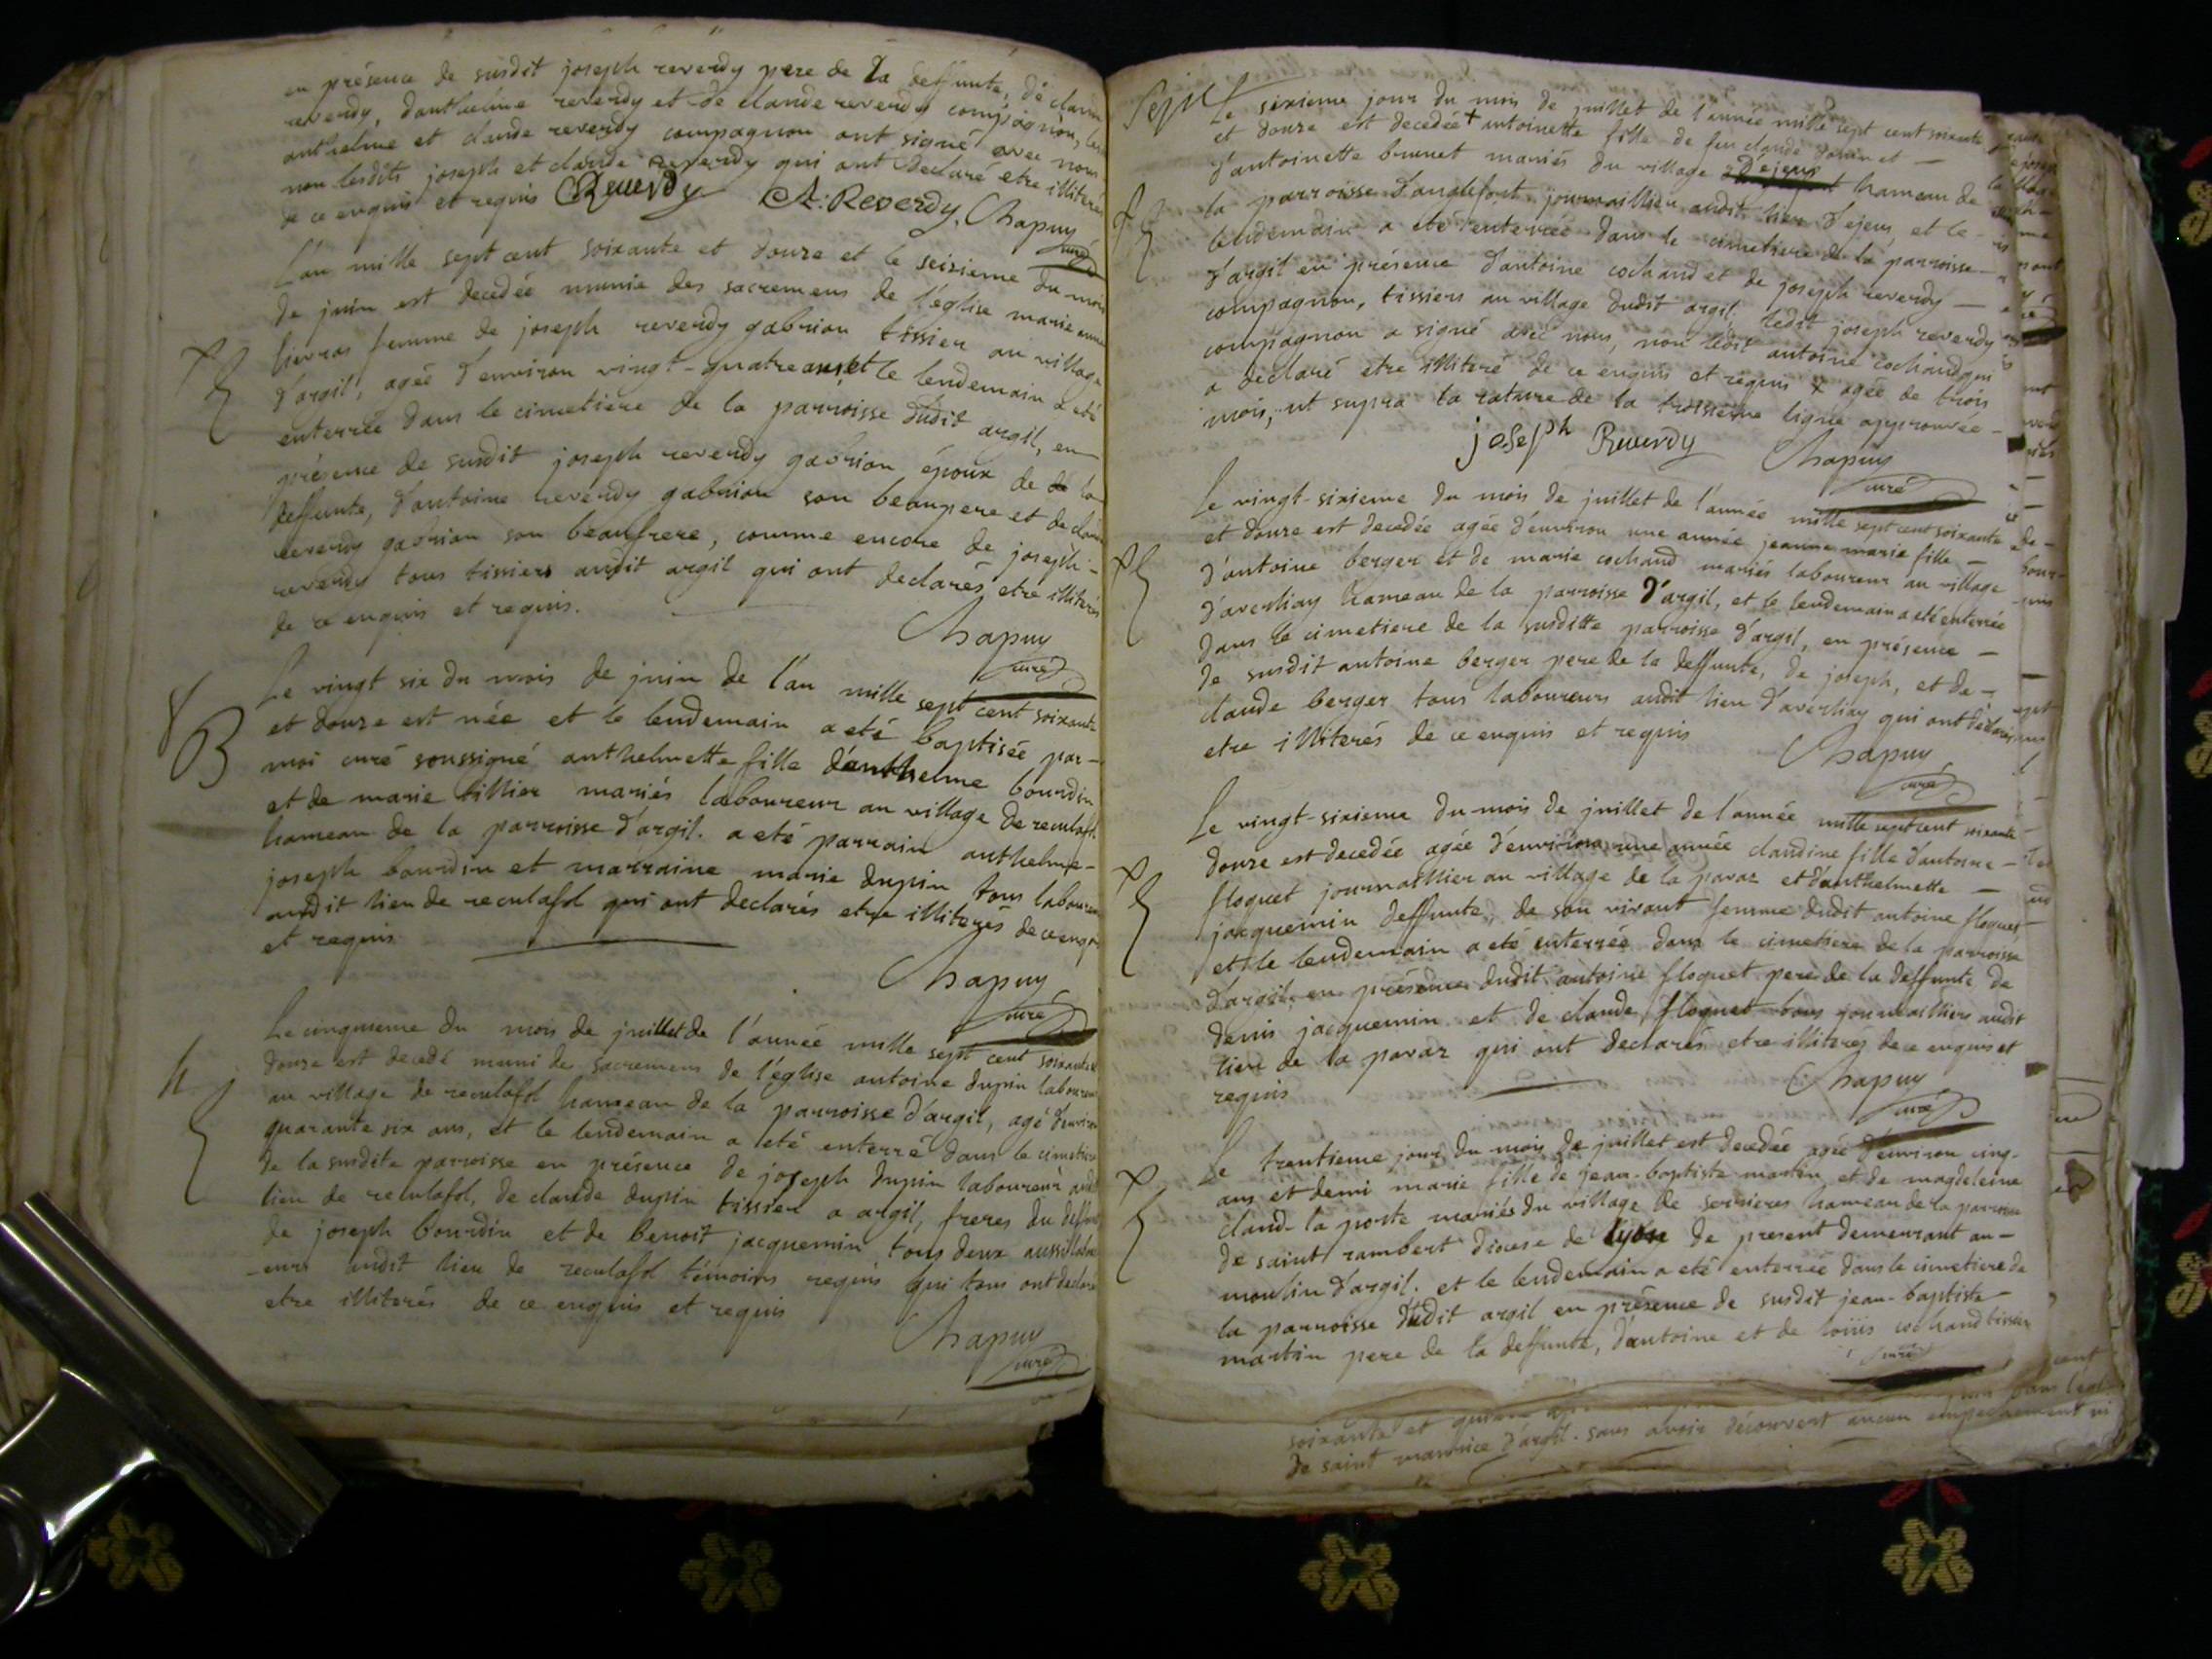 en présence de susdit joseph reverdy pere de la deffunte, de claude
reverdy, danthelme reverdy et de claude reverdy compagnon, les
anthelme et claude reverdy compagnon ont signé avec nous
non lesdits joseph et claude reverdy qui ont declaré etre illiterés
de ce enquis et requis Reverdy A. Reverdy. Chapuy
curé
L'an mille sept cent soixante et douze et le seizieme du mois
de juin est decedée munie des sacremens de l'église marie anne
femme de joseph reverdy gabrion tissier au village
d'argil, agée d'environ vingt-quatre ans, et le lendemain a eté
enterrée dans le cimetiere de la parroisse dudit argil, en
présence de susdit joseph reverdy gabrion époux de la
deffunte, d'antoine reverdy gabrion son beaupere et de claude
reverdy gabrion son beaufrere, comme encore de joseph-
reverdy tous tissiers audit argil qui ont declarés etre illiterés
de ce enquis et requis.
Chapuy
curé
B
Le vingt six du mois de juin de l'an mille sept cent soixante
et douze est née et le lendemain a eté baptisée par-
moi curé soussigné anthelmette fille d'anthelme bourdin
et de marie tillier mariés laboureur au village de reculafol
hameau de la parroisse d'argil. a eté parrain anthelme-
joseph bourdin et marraine marie dupin tous laboureurs
audit lieu de reculafol qui ont declarés etre illiterés de ce enquis
et requis
Chapuy
curé
Le cinquieme du mois de juillet de l'année mille sept cent soixante et
douze est decedé muni des sacremens de l'église antoine dupin laboureur
au village de reculafol hameau de la parroisse d'argil, agé d'environ
quarante six ans, et le lendemain a eté enterré dans le cimetiere
de la susdite parroisse en présence de joseph dupin laboureur audit
lieu de reculafol, de claude dupin tissier a argil, freres du deffunt
de joseph bourdin et de benoit jacquemin tous deux aussi labour
-eurs audit lieu de reculafol témoins requis qui tous ont declaré
etre illiterés de ce enquis et requis
Chapuy
curé
Le sixieme jour du mois de juillet de l'année mille sept cent soixante
et douze est decedée + antoinette fille de feu claude
d'antoinette brunet mariés du village d'ejeux hameau de
la parroisse d'anglefort, journaillier audit lieu d'ejeux, et le-
lendemain a eté enterrée dans le cimetiere de la parroisse-
d'argil en présence d'antoine cochand et de joseph reverdy-
compagnon, tissiers au village dudit argil. ledit joseph reverdy
compagnon a signé avec nous, non ledit antoine cochand qui
a declaré etre illiteré de ce enquis et requis x agée de trois
mois, ut supra la rature de la troisieme ligne approuvée-
joseph Reverdy Chapuy
curé
Le vingt-sixieme du mois de juillet de l'année mille sept cent soixante
et douze est decedée agée d'environ une année jeanne marie fille-
d'antoine berger et de marie cochand mariés laboureur au village
d'averliay hameau de la parroisse d'argil, et le lendemain a eté enterrée
dans le cimetiere de la susditte parroisse d'argil, en présence-
de susdit antoine berger pere de la deffunte, de joseph, et de-
claude berger tous laboureurs audit lieu d'averliay qui ont declarés
etre illiterés de ce enquis et requis
Chapuy
curé
Le vingt-sixieme du mois de juillet de l'année mille sept cent soixante
douze est decedée agée d'environ une année claudine fille d'antoine-
floquet journaillier au village de la pavaz et d'anthelmette-
jacquemin deffunte, de son vivant femme dudit antoine floquet
et le lendemain a eté enterrée dans le cimetiere de la parroisse
d'argil, en présence dudit antoine floquet pere de la deffunte, de
denis jacquemin et de claude floquet tous journailliers audit
lieu de la pavaz qui ont declarés etre illiterés de ce enquis et
requis
Chapuy
curé
Le trentieme jour du mois de juillet est decedée agée d'environ cinq-
ans et demi marie fille de jean-baptiste martin et de magdeleine
claud-la poste mariés du village de serrieres hameau de la parroisse
de saint rambert diocese de lyon de present demeurant au-
moulin d'argil. et le lendemain a eté enterrée dans le cimetiere de
la parroisse dudit argil en présence de susdit jean-baptiste-
martin pere de la deffunte, d'antoine et de loüis cochand tissiers
soixante et
de saint maurice d'argil. sans avoir découvert aucun empechement ni